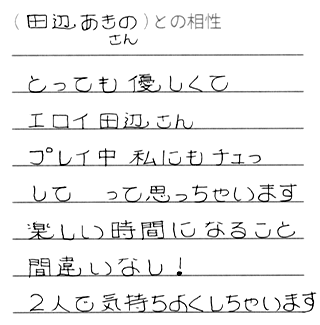 （田辺あきの）との相性
さん
とっても優しくて
エロイ田辺さん
プレイ中 私にもチュっ
して って思っちゃいます
楽しい時間になること
間違いなし！
2人で気持ちよくしちゃいます